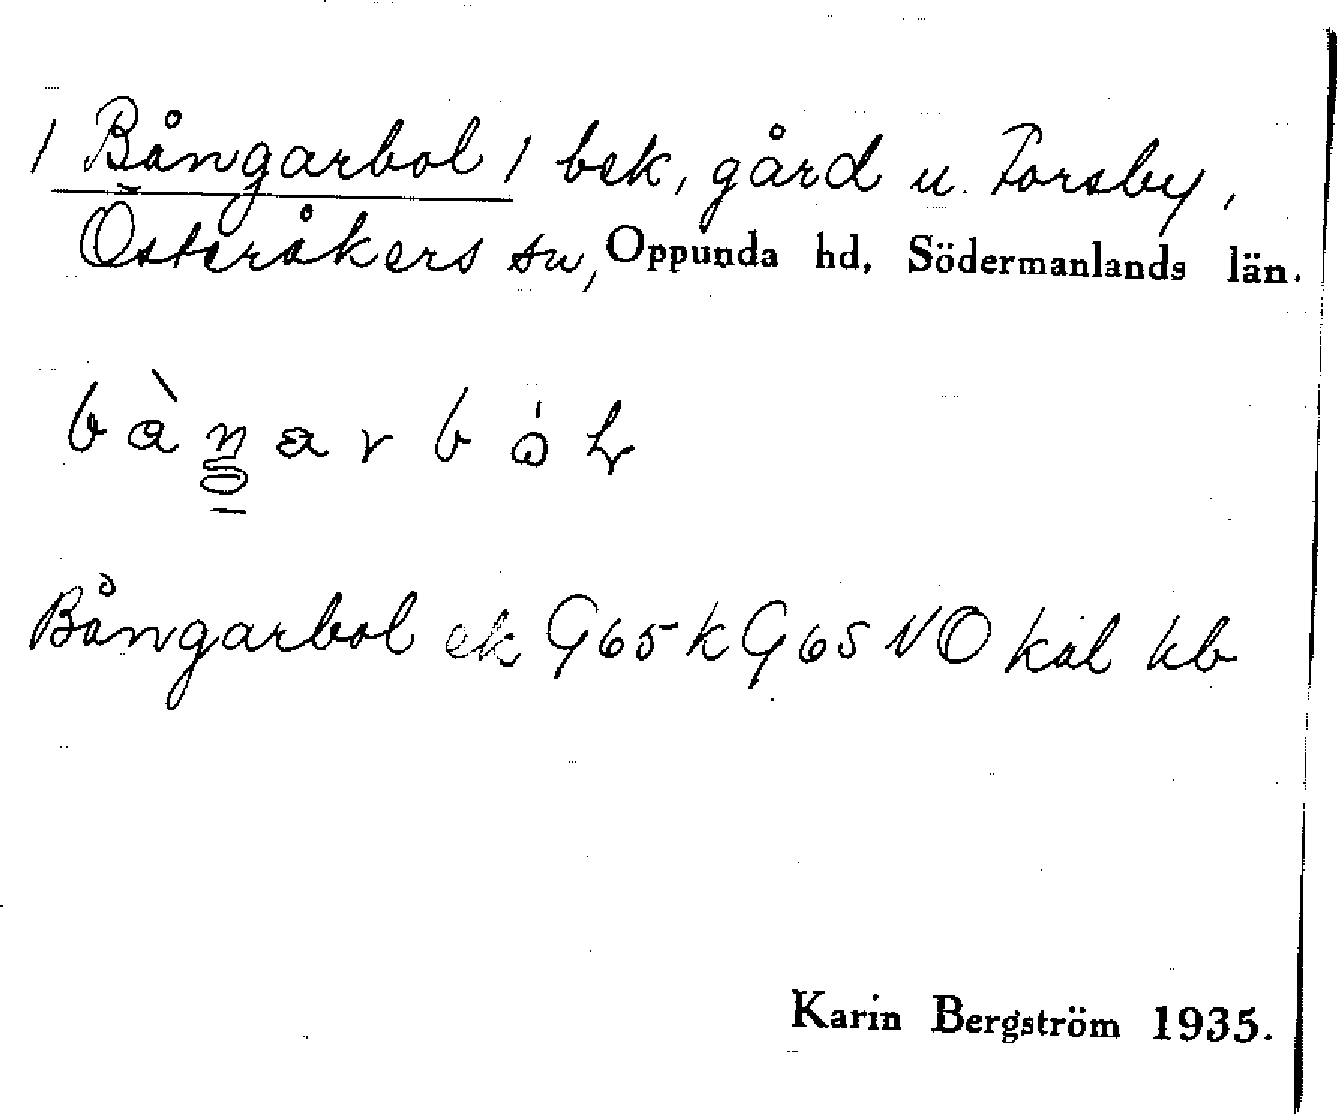 / Bångarbol / bek, gård u. Forsby,
Österåkers sn, Oppunda hd, Södermanlands län.
Bångarbol ek G65 k G65 NO kal kb
Karin Bergström 1935.